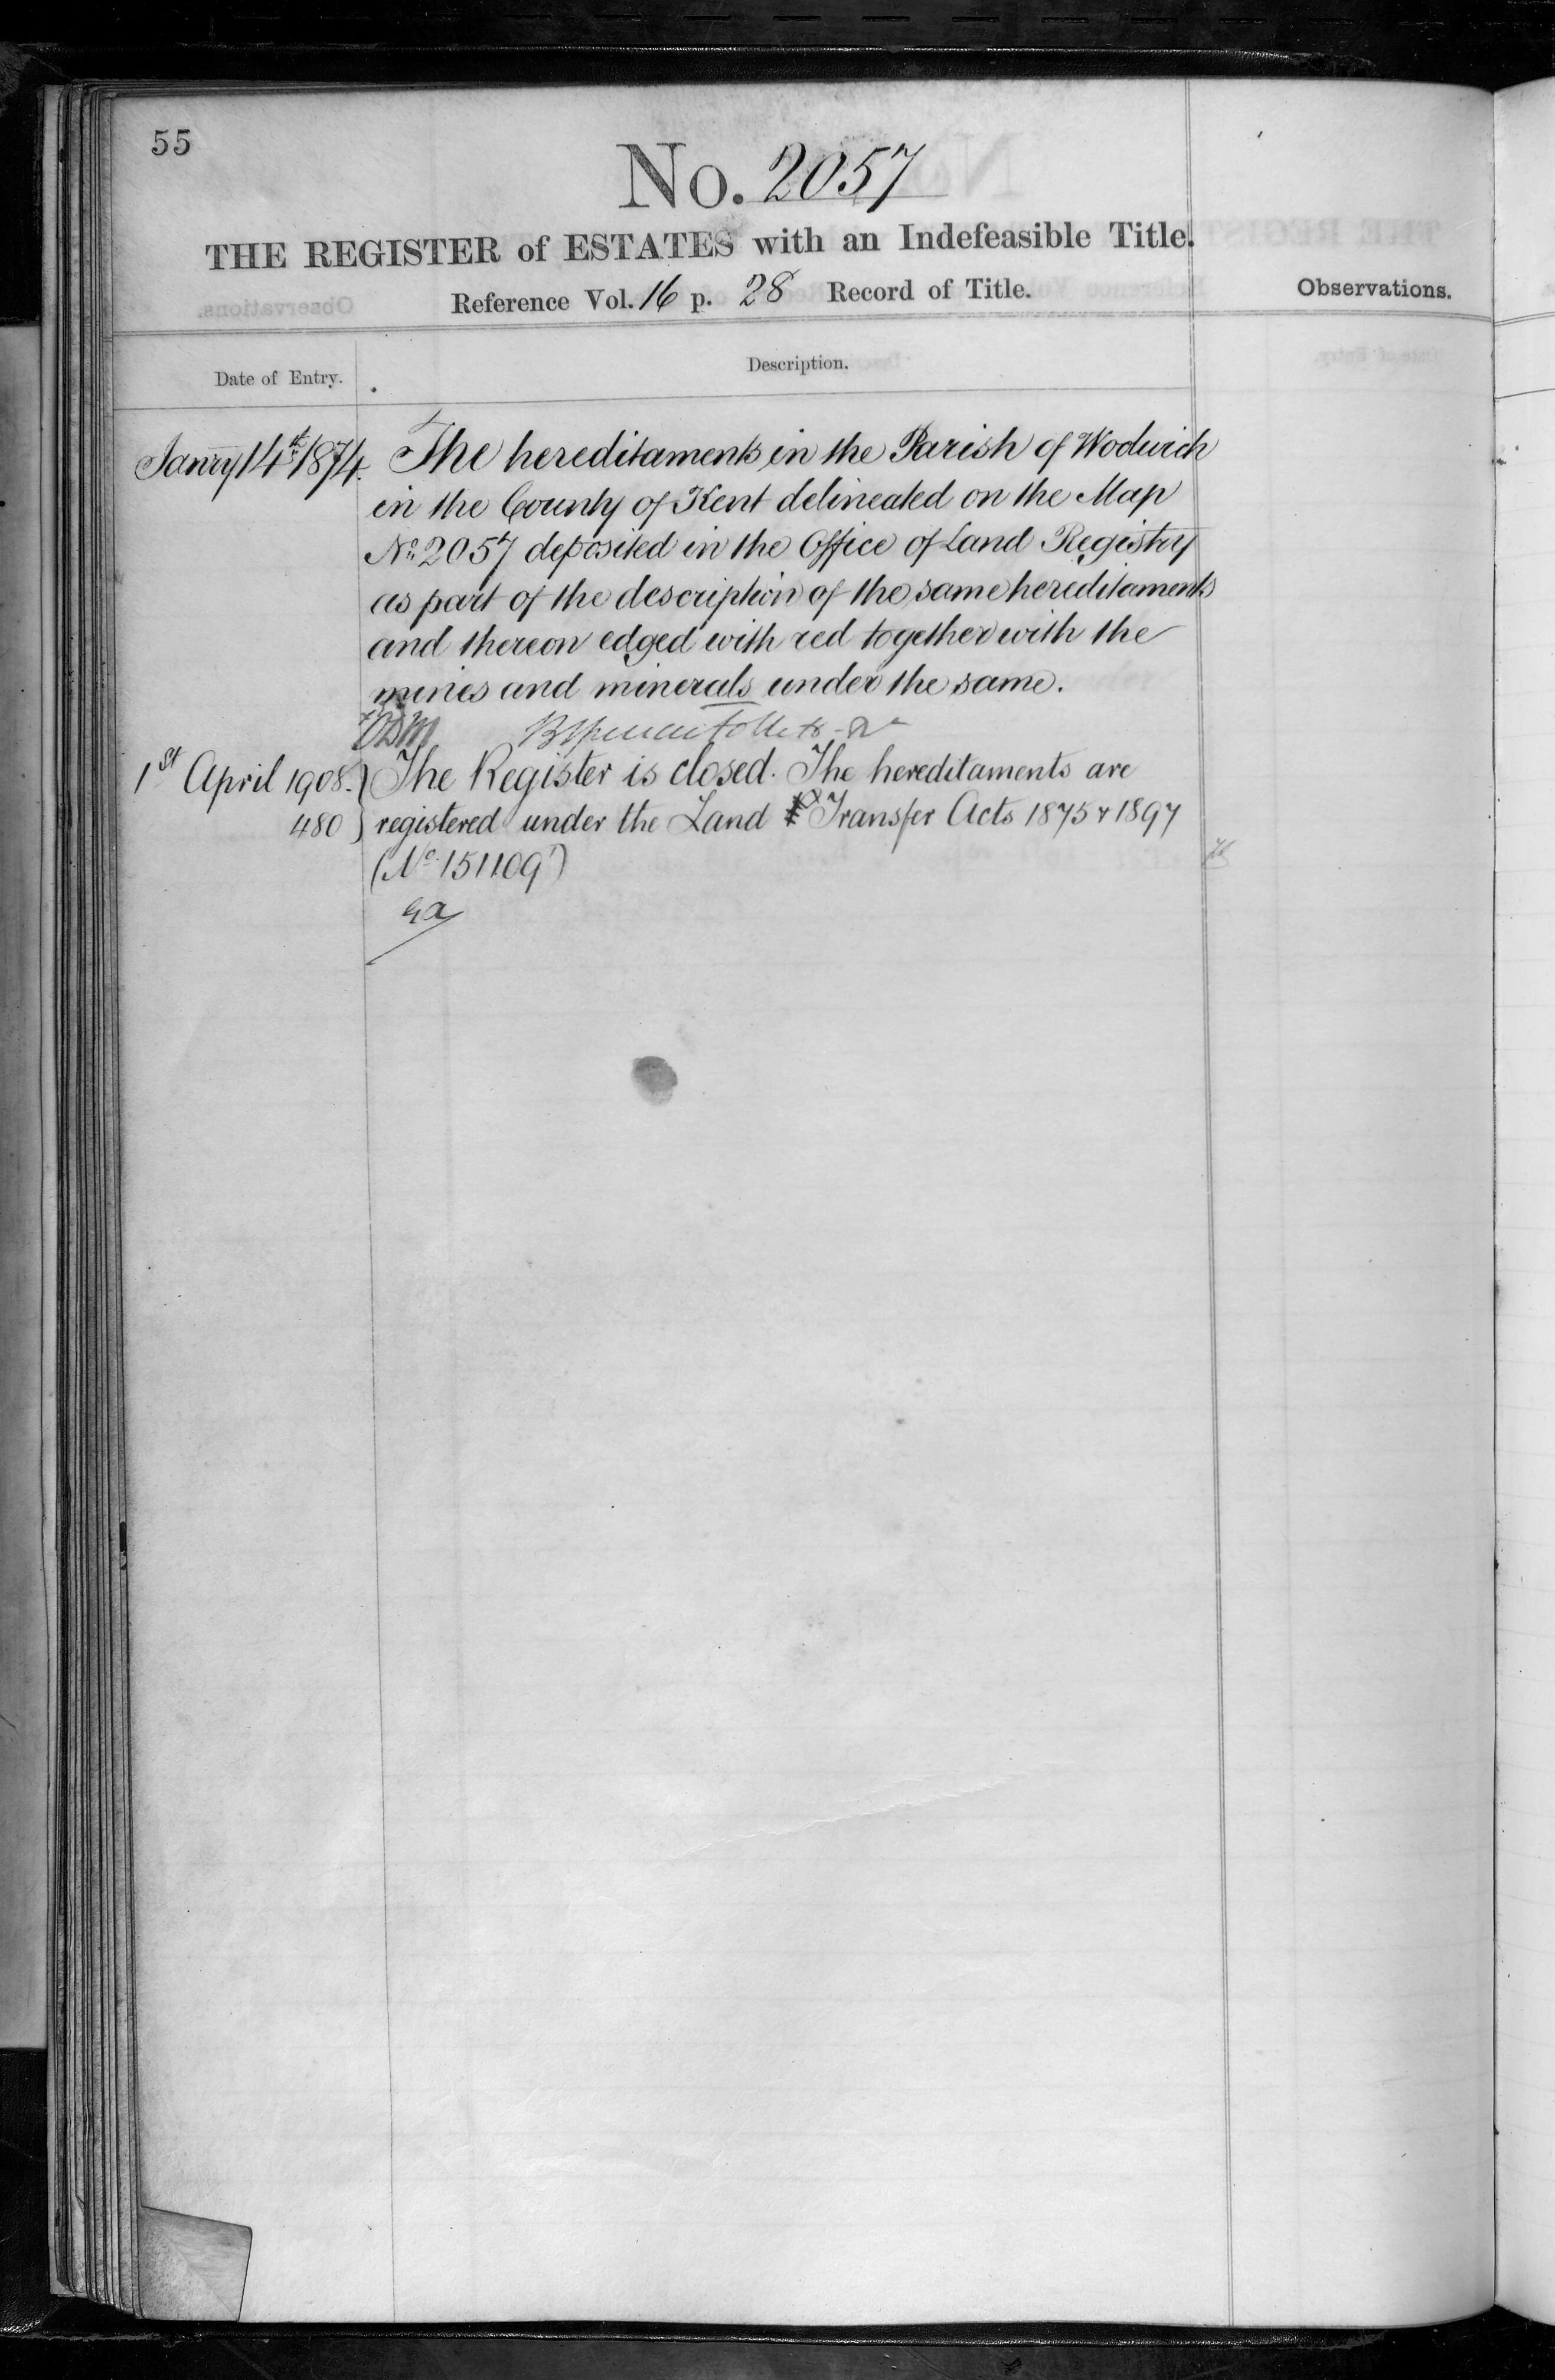 55
No. 2057
THE REGISTER of ESTATES with an Indefeasible Title.
Reference Vol. 16 p. 28 Record of Title.
Observations.
Date of Entry.
Description.
Janry 14th 1874. The hereditaments in the Parish of Woolwich
in the County of Kent delineated on the Map
No. 2057 deposited in the Office of Land Registry
as part of the description of the same hereditaments
and thereon edged with red together with the
mines and minerals under the same.
1st April 1908. The Register is closed. The hereditaments are
480 registered under the Land Transfer Acts 1875 & 1897
(No. 151109)